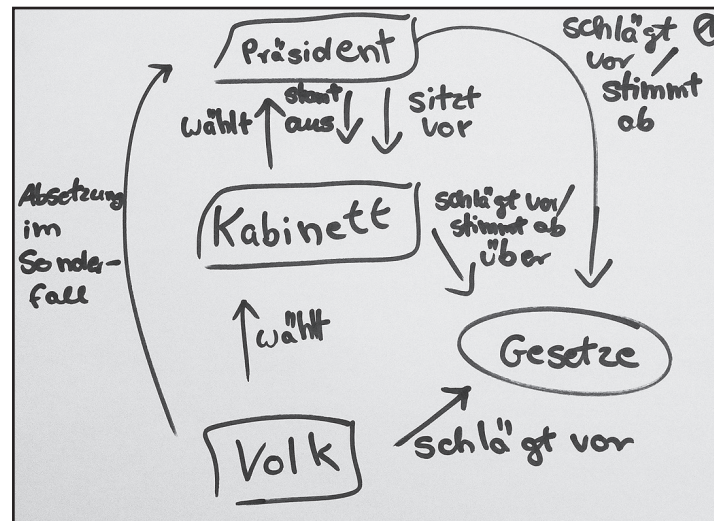 Präsident
schlägt
vor /
stimmt
ab
wählt
aus
sitzt
vor
Absetzung
im
Sonder-
fall
Kabinett
schlägt vor/
stimmt ab
über
wählt
Gesetze
Volk
schlägt vor